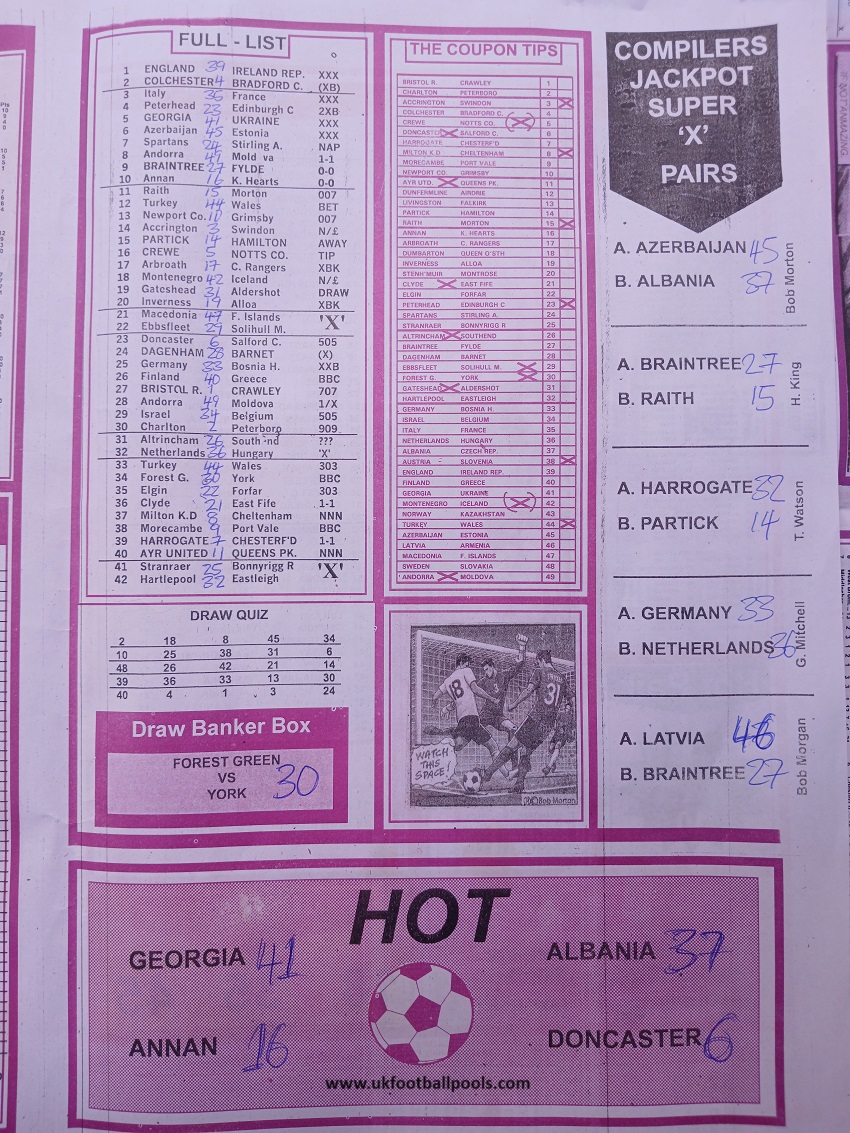 FULL - LIST
1 ENGLAND 39 IRELAND REP. XXX
2 COLCHESTER 4 BRADFORD C. (XB)
3 Italy 36 France XXX
4 Peterhead 23 Edinburgh C 2XB
5 GEORGIA 41 UKRAINE XXX
6 Azerbaijan 45 Estonia XXX
7 Spartans 24 Stirling A. NAP
8 Andorra 49 Mold va 1-1
9 BRAINTREE 27 FYLDE 0-0
10 Annan 16 K. Hearts 0-0
11 Raith 15 Morton 007
12 Turkey 44 Wales BET
13 Newport Co. 10 Grimsby 007
14 Accrington 3 Swindon N/£
15 PARTICK 14 HAMILTON AWAY
16 CREWE 5 NOTTS CO. TIP
17 Arbroath 17 C. Rangers XBK
18 Montenegro 42 Iceland N/£
19 Gateshead 31 Aldershot DRAW
20 Inverness 19 Alloa XBK
21 Macedonia 47 F. Islands
22 Ebbsfleet 29 Solihull M. 'X'
23 Doncaster 6 Salford C. 505
24 DAGENHAM 28 BARNET (X)
25 Germany 33 Bosnia H. XXB
26 Finland 40 Greece BBC
27 BRISTOL R. 1 CRAWLEY 707
28 Andorra 49 Moldova 1/X
29 Israel 34 Belgium 505
30 Charlton 2 Peterboro 909
31 Altrincham 26 South nd ???
32 Netherlands 36 Hungary 'X'
33 Turkey 44 Wales 303
34 Forest G. 30 York BBC
35 Elgin 22 Forfar 303
36 Clyde 21 East Fife 1-1
37 Milton K.D 8 Cheltenham NNN
38 Morecambe 9 Port Vale BBC
39 HARROGATE 7 CHESTERF'D 1-1
40 AYR UNITED 11 QUEENS PK. NNN
41 Stranraer 25 Bonnyrigg R
42 Hartlepool 32 Eastleigh 'X'
THE COUPON TIPS
BRISTOL R. CRAWLEY 1
CHARLTON PETERBORO 2
ACCRINGTON SWINDON 3
COLCHESTER BRADFORD C. 4
CREWE NOTTS CO. 5
DONCASTER SALFORD C. 6
HARROGATE CHESTERF'D 7
MILTON K.D CHELTENHAM 8
MORECAMBE PORT VALE 9
NEWPORT CO. GRIMSBY 10
AYR UTD. QUEENS PK. 11
DUNFERMLINE AIRDRIE 12
LIVINGSTON FALKIRK 13
PARTICK HAMILTON 14
RAITH MORTON 15
ANNAN K. HEARTS 16
ARBROATH C. RANGERS 17
DUMBARTON QUEEN O'STH 18
INVERNESS ALLOA 19
STENH'MUIR MONTROSE 20
CLYDE EAST FIFE 21
ELGIN FORFAR 22
PETERHEAD EDINBURGH C 23
SPARTANS STIRLING A. 24
STRANRAER BONNYRIGG R 25
ALTRINCHAM SOUTHEND 26
BRAINTREE FYLDE 27
DAGENHAM BARNET 28
EBBSFLEET SOLIHULL M. 29
FOREST G. YORK 30
GATESHEAD ALDERSHOT 31
HARTLEPOOL EASTLEIGH 32
GERMANY BOSNIA H. 33
ISRAEL BELGIUM 34
ITALY FRANCE 35
NETHERLANDS HUNGARY 36
ALBANIA CZECH REP. 37
AUSTRIA SLOVENIA 38
ENGLAND IRELAND REP. 39
FINLAND GREECE 40
GEORGIA UKRAINE 41
MONTENEGRO ICELAND 42
NORWAY KAZAKHSTAN 43
TURKEY WALES 44
AZERBAIJAN ESTONIA 45
LATVIA ARMENIA 46
MACEDONIA F. ISLANDS 47
SWEDEN SLOVAKIA 48
ANDORRA MOLDOVA 49
COMPILERS
JACKPOT
SUPER
'X'
PAIRS
A. AZERBAIJAN 45
B. ALBANIA 37
Bob Morton
A. BRAINTREE 27
B. RAITH 15
H. King
A. HARROGATE 32
B. PARTICK 14
T. Watson
A. GERMANY 33
B. NETHERLANDS 36
G. Mitchell
A. LATVIA 46
B. BRAINTREE 27
Bob Morgan
DRAW QUIZ
2 18 8 45 34
10 25 38 31 6
48 26 42 21 14
39 36 33 13 30
40 4 1 3 24
Draw Banker Box
FOREST GREEN
VS
YORK 30
18
31
WATCH
THIS
SPACE!
Bob Morton
HOT
GEORGIA 41
ALBANIA 37
ANNAN 16
DONCASTER 6
www.ukfootballpools.com